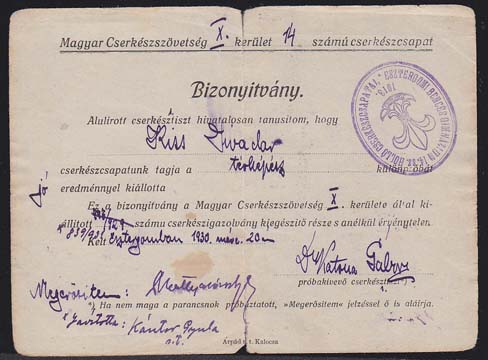 Magyar Cserkészszövetség X. kerület 14 számú cserkészcsapat
Bizonyitvány.
Alulirott cserkésztiszt hivatalosan tanusitom, hogy
Kiss Tivadar
cserkészcsapatunk tagja a térképész különpróbát
jó eredménnyel kiállotta
Ez a bizonyitvány a Magyar Cserkészszövetség X. kerülete által ki-
állitott számú cserkészigazolvány kiegészitő része s anélkül érvénytelen.
Kelt Esztergomban 1930. márc. 20-n
Gábor
próbakivevő cserkésztiszt
Megerősitem:
*) Ha nem maga a parancsnok próbáztatott, »Megerősitem« jelzéssel ő is aláirja.
Javította: Kántor Gyula
Árpád r. t. Kalocsa